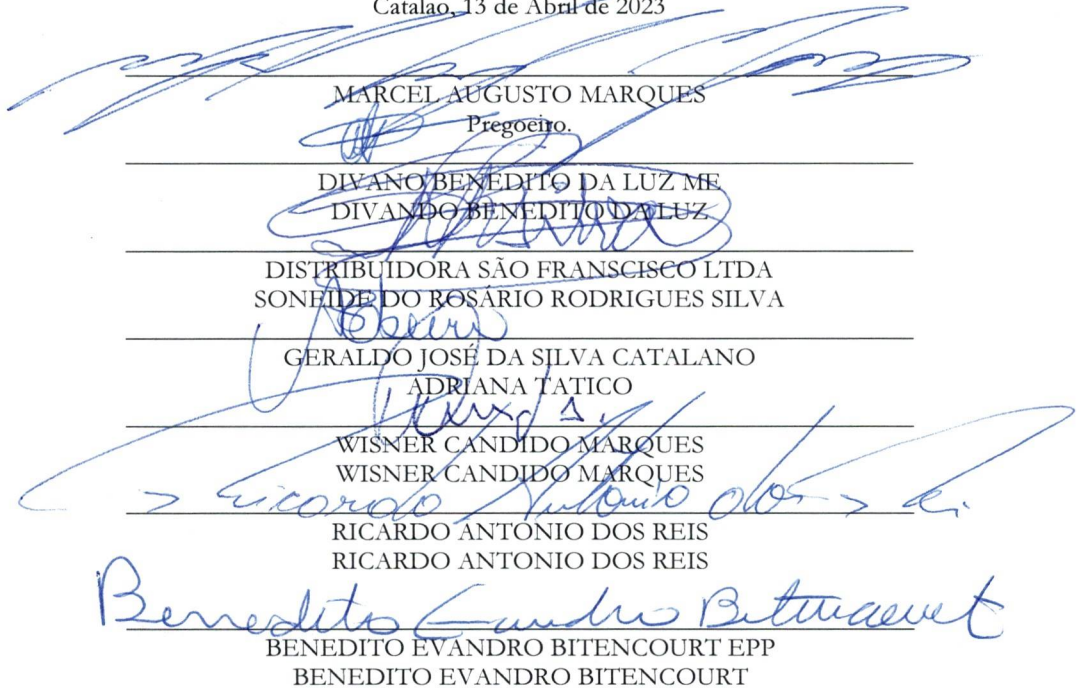 Catalão, 13 de Abril de 2023
MARCEL AUGUSTO MARQUES
Pregoeiro.
DIVANO BENEDITO DA LUZ ME
DIVANDO BENEDITO DA LUZ
DISTRIBUIDORA SÃO FRANSCISCO LTDA
SONEIDE DO ROSÁRIO RODRIGUES SILVA
GERALDO JOSÉ DA SILVA CATALANO
ADRIANA TATICO
WISNER CANDIDO MARQUES
WISNER CANDIDO MARQUES
Ricardo Antonio dos Reis
RICARDO ANTONIO DOS REIS
RICARDO ANTONIO DOS REIS
Benedito Evandro Bitencourt
BENEDITO EVANDRO BITENCOURT EPP
BENEDITO EVANDRO BITENCOURT